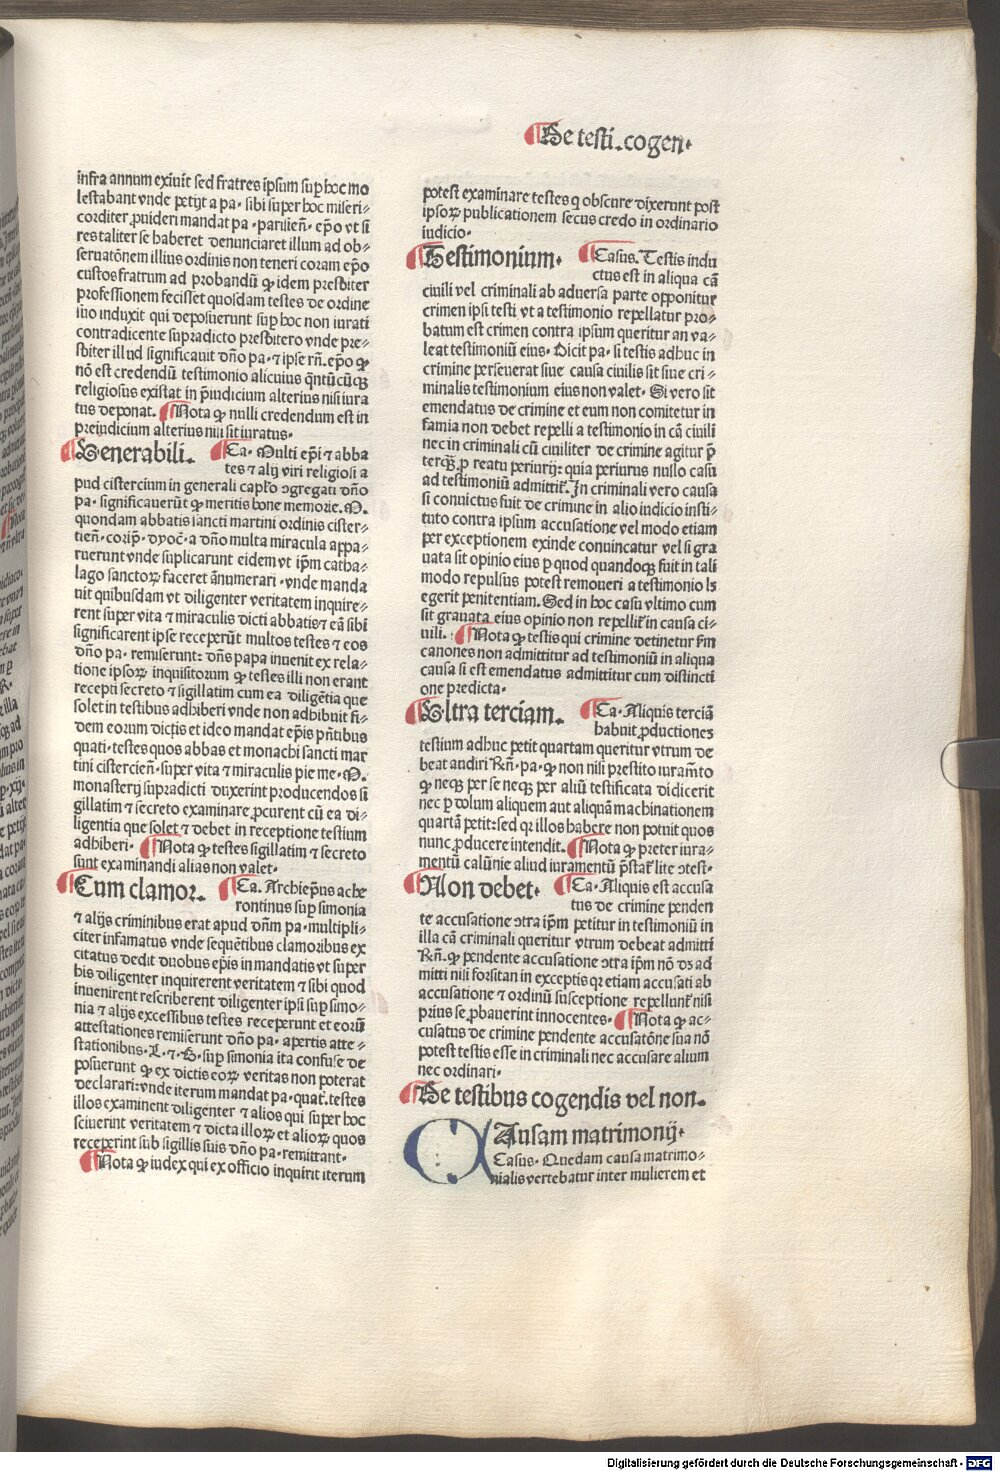 ¶De testi. cogen·
infra annum exiuit sed fratres ipsum sup hoc mo
lestabant vnde petijt a pa· sibi super hoc miseri⸗
corditer ꝓuideri mandat pa· parisieñ· ep̄o vt si
res taliter se haberet denunciaret illum ad ob⸗
seruatōnem illius ordinis non teneri coram ep̄o
custos fratrum ad probandū ꝙ idem presbiter
professionem fecisset quosdam testes de ordine
suo induxit qui deposuerunt sup hoc non iurati
contradicente supradicto presbitero vnde pre⸗
sbiter illud significauit dño pa· ⁊ ipse rñ. ep̄o ꝙ
nō est credendū testimonio alicuius qntūcūqꝫ
religiosus existat in p̄iudicium alterius nisi iura
tus deponat. ¶Nota ꝙ nulli credendum est in
preiudicium alterius nisi sit iuratus·
¶Venerabili. ¶Ca· Multi ep̄i ⁊ abba
tes ⁊ alij viri religiosi a
pud cistercium in generali capło ɔgregati dño
pa· significauerūt ꝙ meritis bone memorie. M.
quondam abbatis sancti martini ordinis cister⸗
tieñ· dyoc̄· a dño multa miracula appa⸗
ruerunt vnde suplicarunt eidem vt ip̄m catha⸗
lago sanctoꝝ faceret ānumerari· vnde manda
uit quibusdam vt diligenter veritatem inquire⸗
rent super vita ⁊ miraculis dicti abbatis ⁊ eā sibi
significarent ipse receperūt multos testes ⁊ eos
dño pa· remiserunt: dñs papa inuenit ex rela⸗
tione ipsoꝝ inquisitorum ꝙ testes illi non erant
recepti secreto ⁊ sigillatim cum ea diligētia que
solet in testibus adhiberi vnde non adhibuit fi⸗
dem eorum dictis et ideo mandat ep̄is p̄ntibus
quati· testes quos abbas et monachi sancti mar
tini cistercieñ· super vita ⁊ miraculis pie me· M.
monasterij supradicti duxerint producendos si
gillatim ⁊ secreto examinare ꝓcurent cū ea di⸗
ligentia que solet ⁊ debet in receptione testium
adhiberi· ¶Nota ꝙ testes sigillatim ⁊ secreto
sunt examinandi alias non valet·
¶Cum clamor. ¶Ca. Archiep̄us ache
rontinus sup simonia
⁊ alijs criminibus erat apud dñm pa· multipli⸗
citer infamatus vnde sequētibus clamoribus ex
citatus dedit duobus ep̄is in mandatis vt super
his diligenter inquirerent veritatem ⁊ sibi quod
inuenirent rescriberent diligenter ipsi sup simo⸗
nia ⁊ alijs excessibus testes receperunt et eorū
attestationes remiserunt dño pa· apertis atte⸗
stationibus· L· ⁊· G· sup simonia ita confuse de
posuerunt ꝙ ex dictis eoꝝ veritas non poterat
declarari: vnde iterum mandat pa· quat̄. testes
illos examinent diligenter ⁊ alios qui super hoc
sciuerint veritatem ⁊ dicta illoꝝ et alioꝝ quos
receperint sub sigillis suis dño pa· remittant·
¶Nota ꝙ iudex qui ex officio inquirit iterum
potest examinare testes q obscure dixerunt post
ipsoꝝ publicationem secus credo in ordinario
iudicio·
¶Testimonium· ¶Casus. Testis indu
ctus est in aliqua cā
ciuili vel criminali ab aduersa parte opponitur
crimen ipsi testi vt a testimonio repellatur pro⸗
batum est crimen contra ipsum queritur an va⸗
leat testimoniū eius· Dicit pa· si testis adhuc in
crimine perseuerat siue causa ciuilis sit siue cri⸗
minalis testimonium eius non valet· Si vero sit
emendatus de crimine et eum non comitetur in
famia non debet repelli a testimonio in cā ciuili
nec in criminali cū ciuiliter de crimine agitur p̄
terqꝫ ꝓ reatu periurij: quia periurus nullo casu
ad testimoniū admittiť. In criminali vero causa
si conuictus fuit de crimine in alio iudicio insti⸗
tuto contra ipsum accusatione vel modo etiam
per exceptionem exinde conuincatur vel si gra
uata sit opinio eius ꝑ quod quandoqꝫ fuit in tali
modo repulsus potest remoueri a testimonio lꝫ
egerit penitentiam. Sed in hoc casu vltimo cum
sit grauata eius opinio non repelliť in causa ci⸗
uili. ¶Nota ꝙ testis qui crimine detinetur fm
canones non admittitur ad testimoniū in aliqua
causa si est emendatus admittitur cum distincti
one predicta·
¶Vltra terciam. ¶Ca· Aliquis terciā
habuit ꝓductiones
testium adhuc petit quartam queritur vtrum de
beat audiri Rñ· pa· ꝙ non nisi prestito iuramēto
ꝙ neqꝫ per se neqꝫ per aliū testificata didicerit
nec ꝑ dolum aliquem aut aliquā machinationem
quartā petit: sed qꝛ illos habere non potuit quos
nunc ꝓducere intendit. ¶Nota ꝙ preter iura⸗
mentū calūnie aliud iuramentū p̄stať lite ɔtest⸗
¶Non debet· ¶Ca· Aliquis est accusa
tus de crimine penden
te accusatione ɔtra ip̄m petitur in testimoniū in
illa cā criminali queritur vtrum debeat admitti
Rñ. ꝙ pendente accusatione ɔtra ip̄m nō dꝫ ad
mitti nisi forsitan in exceptis qꝛ etiam accusati ab
accusatione ⁊ ordinū susceptione repellunť nisi
prius se ꝓbauerint innocentes· ¶Nota ꝙ ac⸗
cusatus de crimine pendente accusatōne sua nō
potest testis esse in criminali nec accusare alium
nec ordinari·
¶De testibus cogendis vel non.
CAusam matrimonij·
Casus· Quedam causa matrimo⸗
nialis vertebatur inter mulierem et
Digitalisierung gefördert durch die Deutsche Forschungsgemeinschaft - DFG